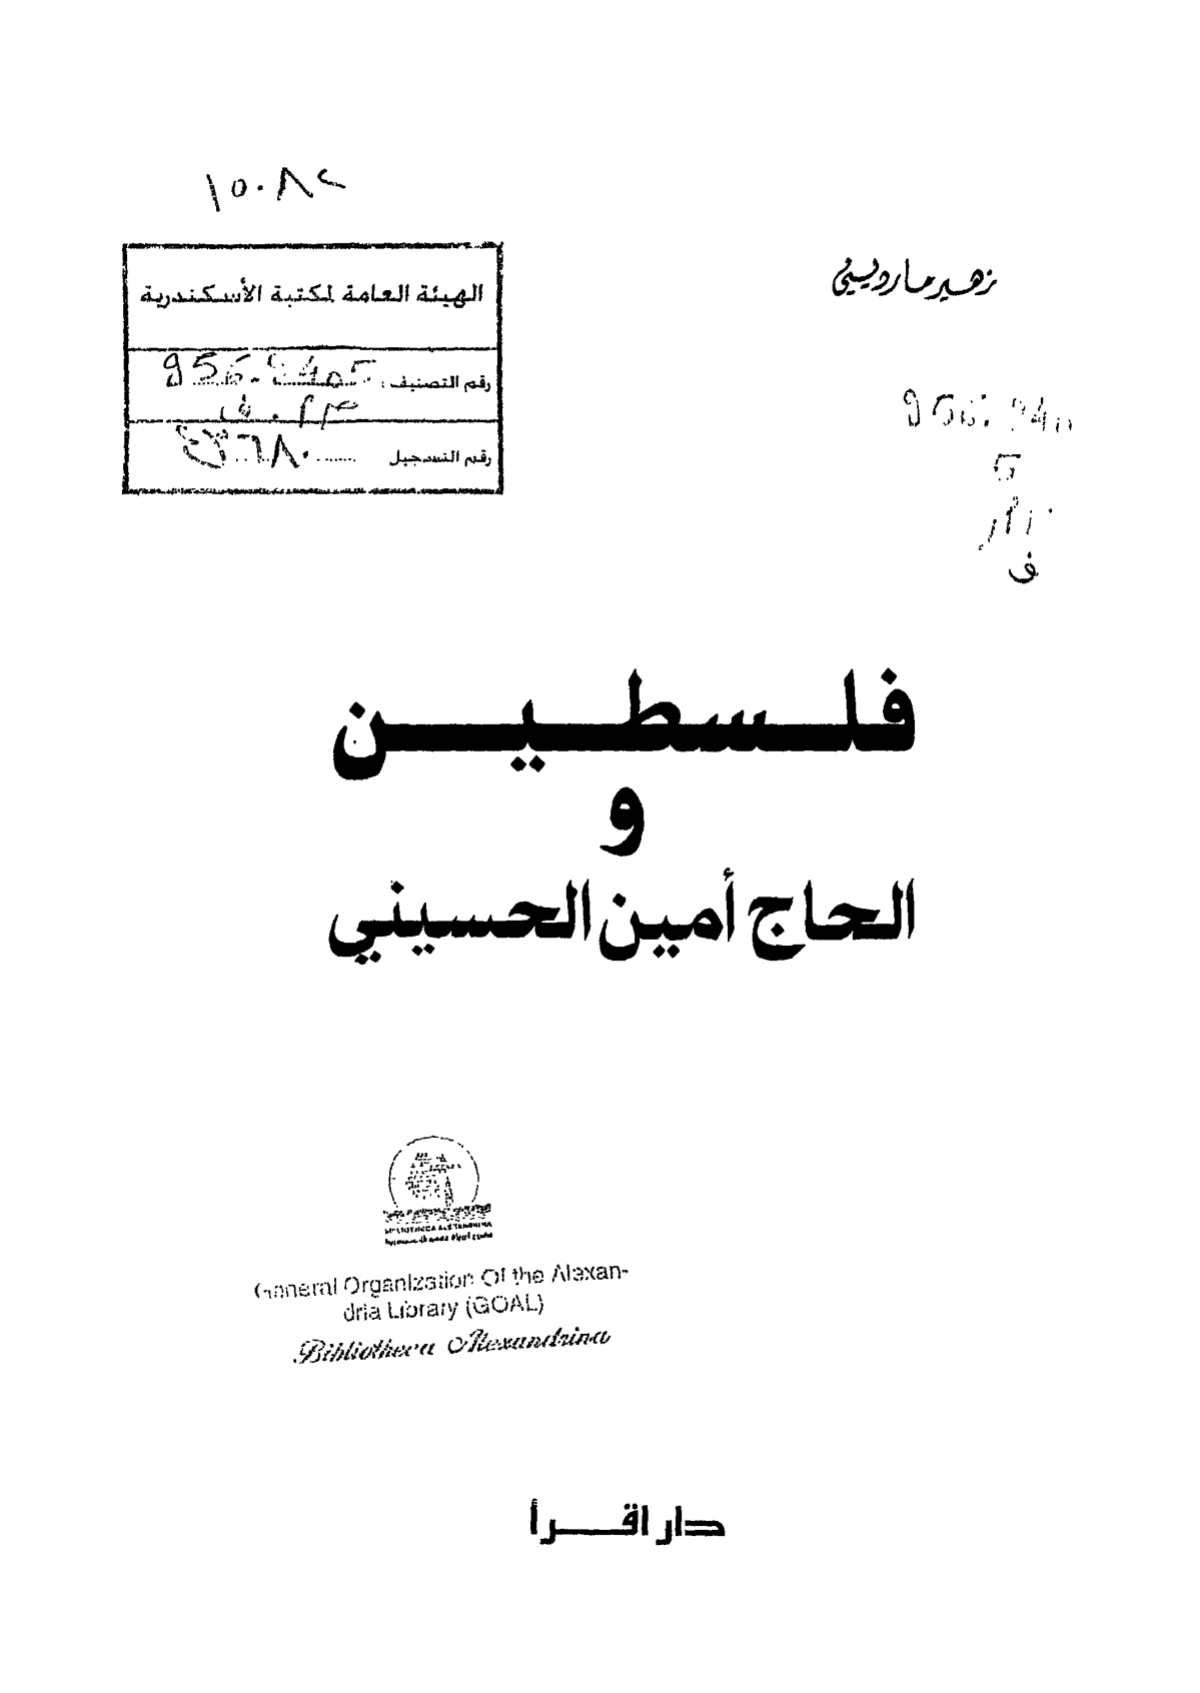 ١٥٠٨٢
الهيئة العامة لمكتبة الأسكندرية
رقم التصنيف : 956.9405
رقم التسجيل
زهير مارديني
956.940
5
ف
فلسطين
و
الحاج أمين الحسيني
BIBLIOTHECA ALEXANDRINA
General Organization Of the Alexan-
dria Library (GOAL)
Bibliotheca Alexandrina
دار اقرأ